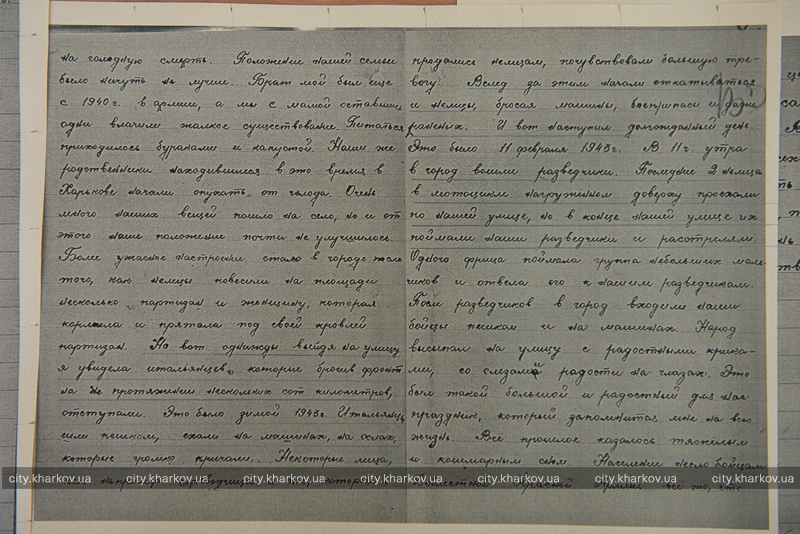 на голодную смерть. Положение нашей семьи
было ничуть не лучше. Брат мой был еще
с 1940 г. в армии, а мы с мамой оставшись
одни влачили жалкое существование. Питаться
приходилось бураками и капустой. Наши же
родственники находившиеся в это время в
Харькове начали опухать от голода. Очень
много наших вещей пошло на село, но и от
этого наше положение почти не улучшилось.
Более ужасное настроение стало в городе после
того, как немцы повесили на площади
несколько партизан и женщину, которая
кормила и прятала под своей кровлей
партизан. Но вот однажды выйдя на улицу
я увидела итальянцев, которые бросив фронт
на протяжении нескольких сот километров,
отступали. Это было зимой 1943 г. Итальянцы
шли пешком, ехали на машинах, на ослах,
которые громко кричали. Некоторые лица,
продались немцам, почувствовали большую тре-
вогу. Вслед за этим начали откатываться
и немцы, бросая машины, боеприпасы и даже
раненых. И вот наступил долгожданный день.
Это было 11 февраля 1943 г. В 11 ч. утра
в город вошли разведчики. Последние 2 немца
в мотоцикле нагруженном доверху проехали
по нашей улице, но в конце нашей улице их
поймали наши разведчики и расстреляли.
Одного фрица поймала группа небольших маль-
чиков и отвела его к нашим разведчикам.
После разведчиков в город входили наши
бойцы пешком и на машинах. Народ
высыпал на улицу с радостными крика-
ми, со слезами радости на глазах. Это
был такой большой и радостный для нас
праздник, который запомнится мне на всю
жизнь. Всё прошлое казалось тяжёлым
и кошмарным сном. Население несло бойцам
Красной Армии всё то, что
city.kharkov.ua city.kharkov.ua city.kharkov.ua city.kharkov.ua city.kharkov.ua city.kharkov.ua city.kharkov.ua